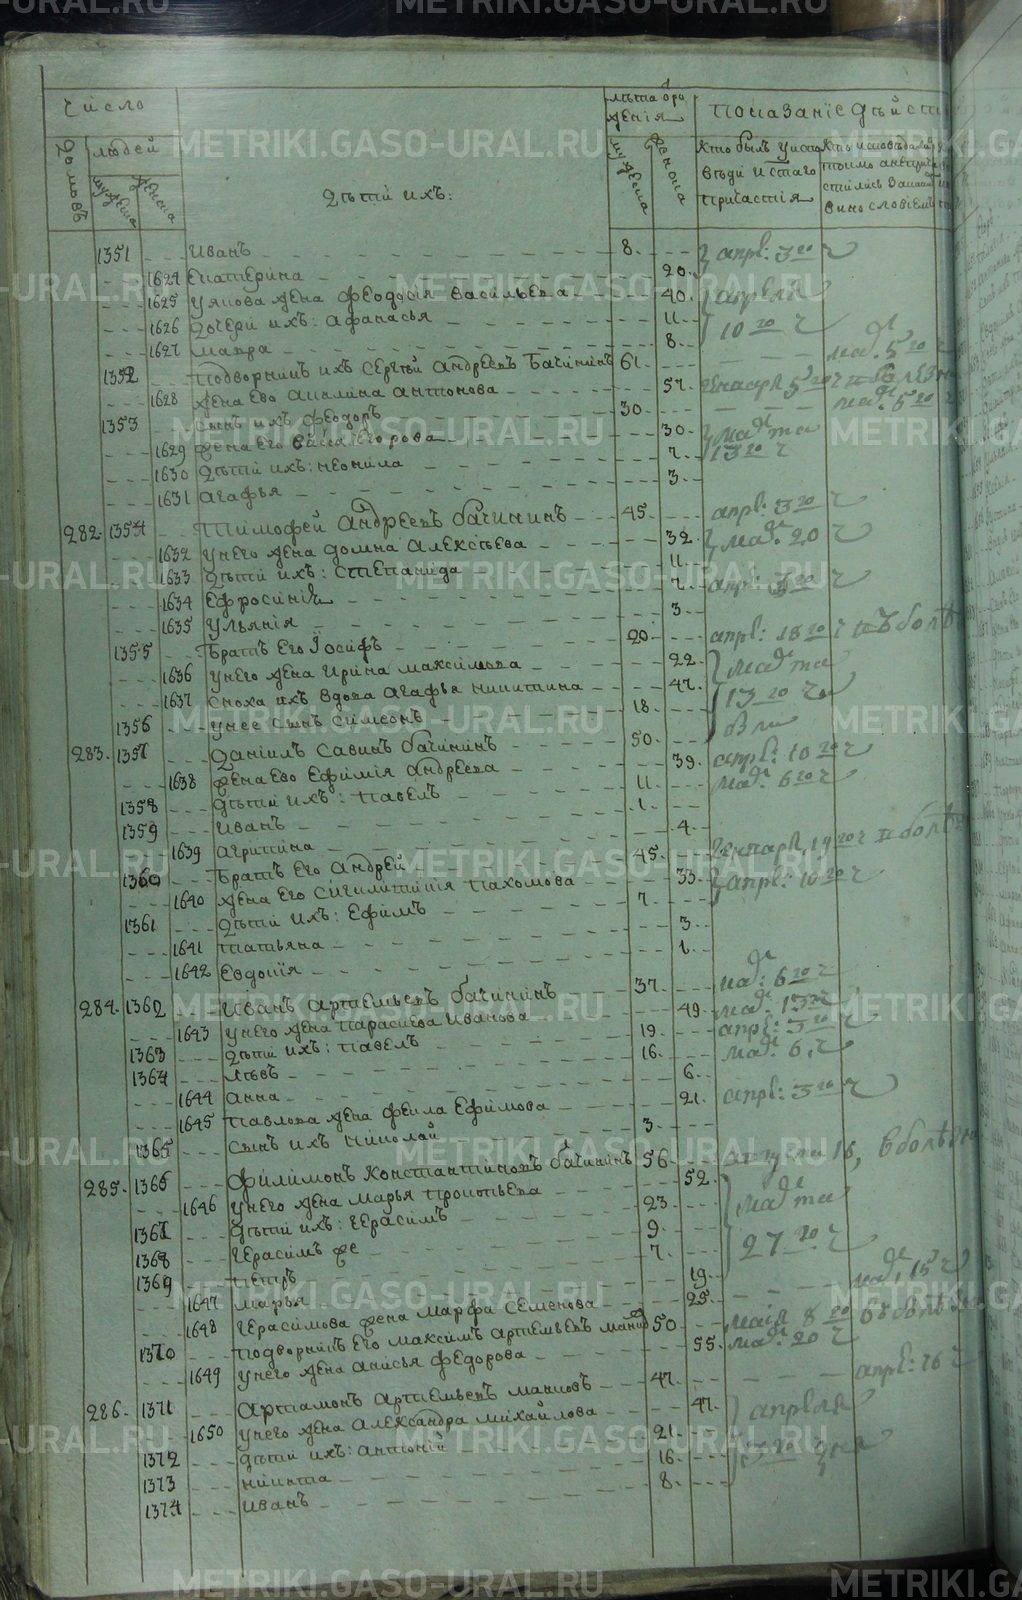 Число
Лѣта рожденія
Показанїе дѣйст
домовъ
людей
мужеска
женска
Дѣтїй ихъ:
мужеска
женска
Кто былъ у испо
вѣди и с:таго
причастїя
1351 Иванъ 8. апрѣ: 3го ч
1624 Екатерина 20.
1625 Уякова жена Феодосїя Васильева 40. апрѣля
1626 Дочери ихъ: Афанасья 11. 10го ч
1627 Мавра 8.
1352 Подворникъ ихъ Сергѣй Андреевъ Бачининъ 61. мар: 5го ч
1628 Жена Ево Акилина Антонова 57.
1353 Сынъ ихъ Феодоръ 30. мар: 5го ч
1629 Жена Его Васса Егорова 30. марта
1630 Дѣтїй ихъ: Неонила 7. 13го ч
1631 Агафья 3.
282. 1354 Тимофей Андреевъ Бачининъ 45. апрѣ: 3го ч
1632 У него жена Домна Алексѣева 32. мар: 20 ч
1633 Дѣтїй ихъ: Степанида 11.
1634 Ефросинїя 7. апрѣ: 3го ч
1635 Ульянїя 3.
1355 Братъ Его Їосифъ 20 апрѣ: 18го ч
1636 У него жена Ирина Максимова 22. марта
1637 Сноха ихъ вдова Агафья Никитина 47. 13го ч
1356 У нее сынъ Симеонъ 18.
283. 1357 Данїилъ Савинъ Бачининъ 50. апрѣ: 10го ч
1638 Жена Ево Ефимїя Андреева 39. мар: 6го ч
1358 Дѣтїй ихъ: Павелъ 11.
1359 Иванъ 1.
1639 Агрипина 4.
1360 Братъ Его Андрей 45. генваря 19го ч
1640 Жена Его Сигклитикїя Пахомова 33. апрѣ: 10го ч
1361 Дѣтїй ихъ: Ефимъ 7.
1641 Татьяна 3.
1642 Евдокїя 1.
284. 1362 Иванъ Артемьевъ Бачининъ 37. мар: 6го ч
1643 У него жена Параскева Иванова 49. мар: 13го ч
1363 Дѣтїй ихъ: Павелъ 19. апрѣ: 3го ч
1364 Львъ 16. мар: 6. ч
1644 Анна 6.
1645 Павлова жена Фекла Ефимова 21. апрѣ: 3го ч
1365 Сынъ ихъ Николай 3.
285. 1366 Филимонъ Константиновъ Бачининъ 56. августа 16,
1646 У него жена Марья Прокопьева 52.
1367 Дѣтїй ихъ: Герасимъ 23. марта
1368 Герасимъ же 9. 27го ч
1369 Петръ 7.
1647 Марья 19. мар: 15 ч
1648 Герасимова жена Марфа Семенова 25.
1370 Подворникъ Его Максимъ Артемьевъ 50. маїя 8го
1649 У него жена Анисья Федорова 55. мар: 20 ч
286. 1371 Артамонъ Артемьевъ Манковъ 47. апрѣ: 26 ч
1650 У него жена Александра Михайлова 47. апрѣля
1372 Дѣтїй ихъ: Антонїй 21. 3го дня
1373 Никита 16.
1374 Иванъ 8.
METRIKI.GASO-URAL.RU